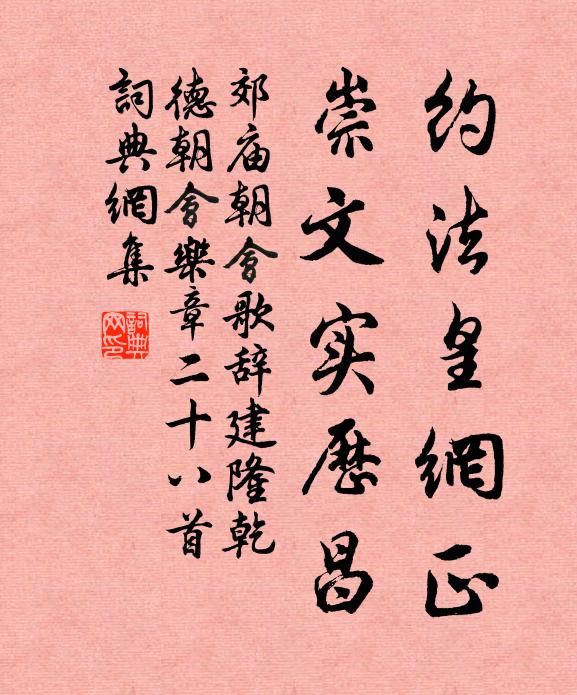 约法皇網正
崇文实歷昌
郊庙朝會歌辞建隆乾
德朝會樂章二十八首
詞典網集
詞典網印